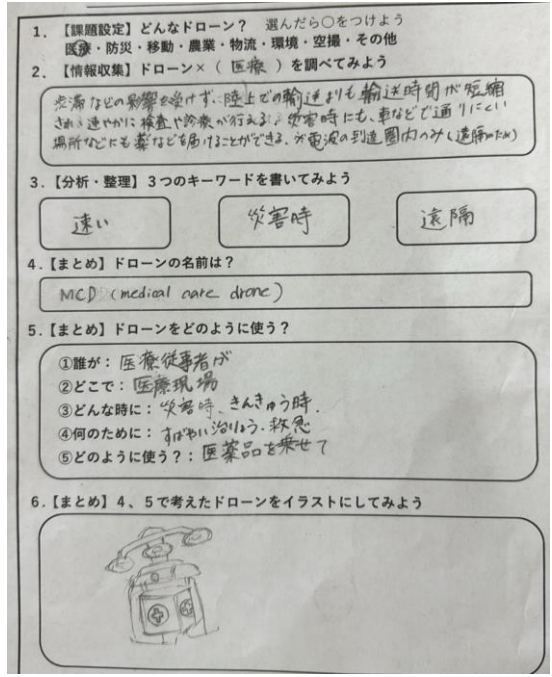 1．【課題設定】どんなドローン？　選んだら○をつけよう
医療・防災・移動・農業・物流・環境・空撮・その他
2．【情報収集】ドローン×（ 医療 ）を調べてみよう
渋滞などの影響を受けず、陸上での輸送よりも輸送時間が短縮
され、速やかに検査や診療が行える。災害時にも、車などで通りにくい
場所などにも薬などを届けることができる。が電波の到達圏内のみ（遠隔のため）
3．【分析・整理】３つのキーワードを書いてみよう
速い　災害時　遠隔
4．【まとめ】ドローンの名前は？
MCD (medical care drone)
5．【まとめ】ドローンをどのように使う？
①誰が：医療従事者が
②どこで：医療現場
③どんな時に：災害時、きんきゅう時.
④何のために：すばやい治りょう・救急
⑤どのように使う？：医薬品を乗せて
6．【まとめ】４、５で考えたドローンをイラストにしてみよう